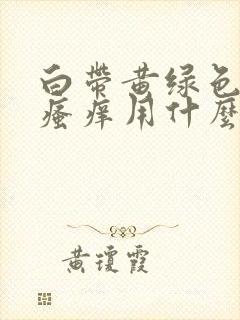 白带黄绿色
瘙痒用什麽
黄琼霞